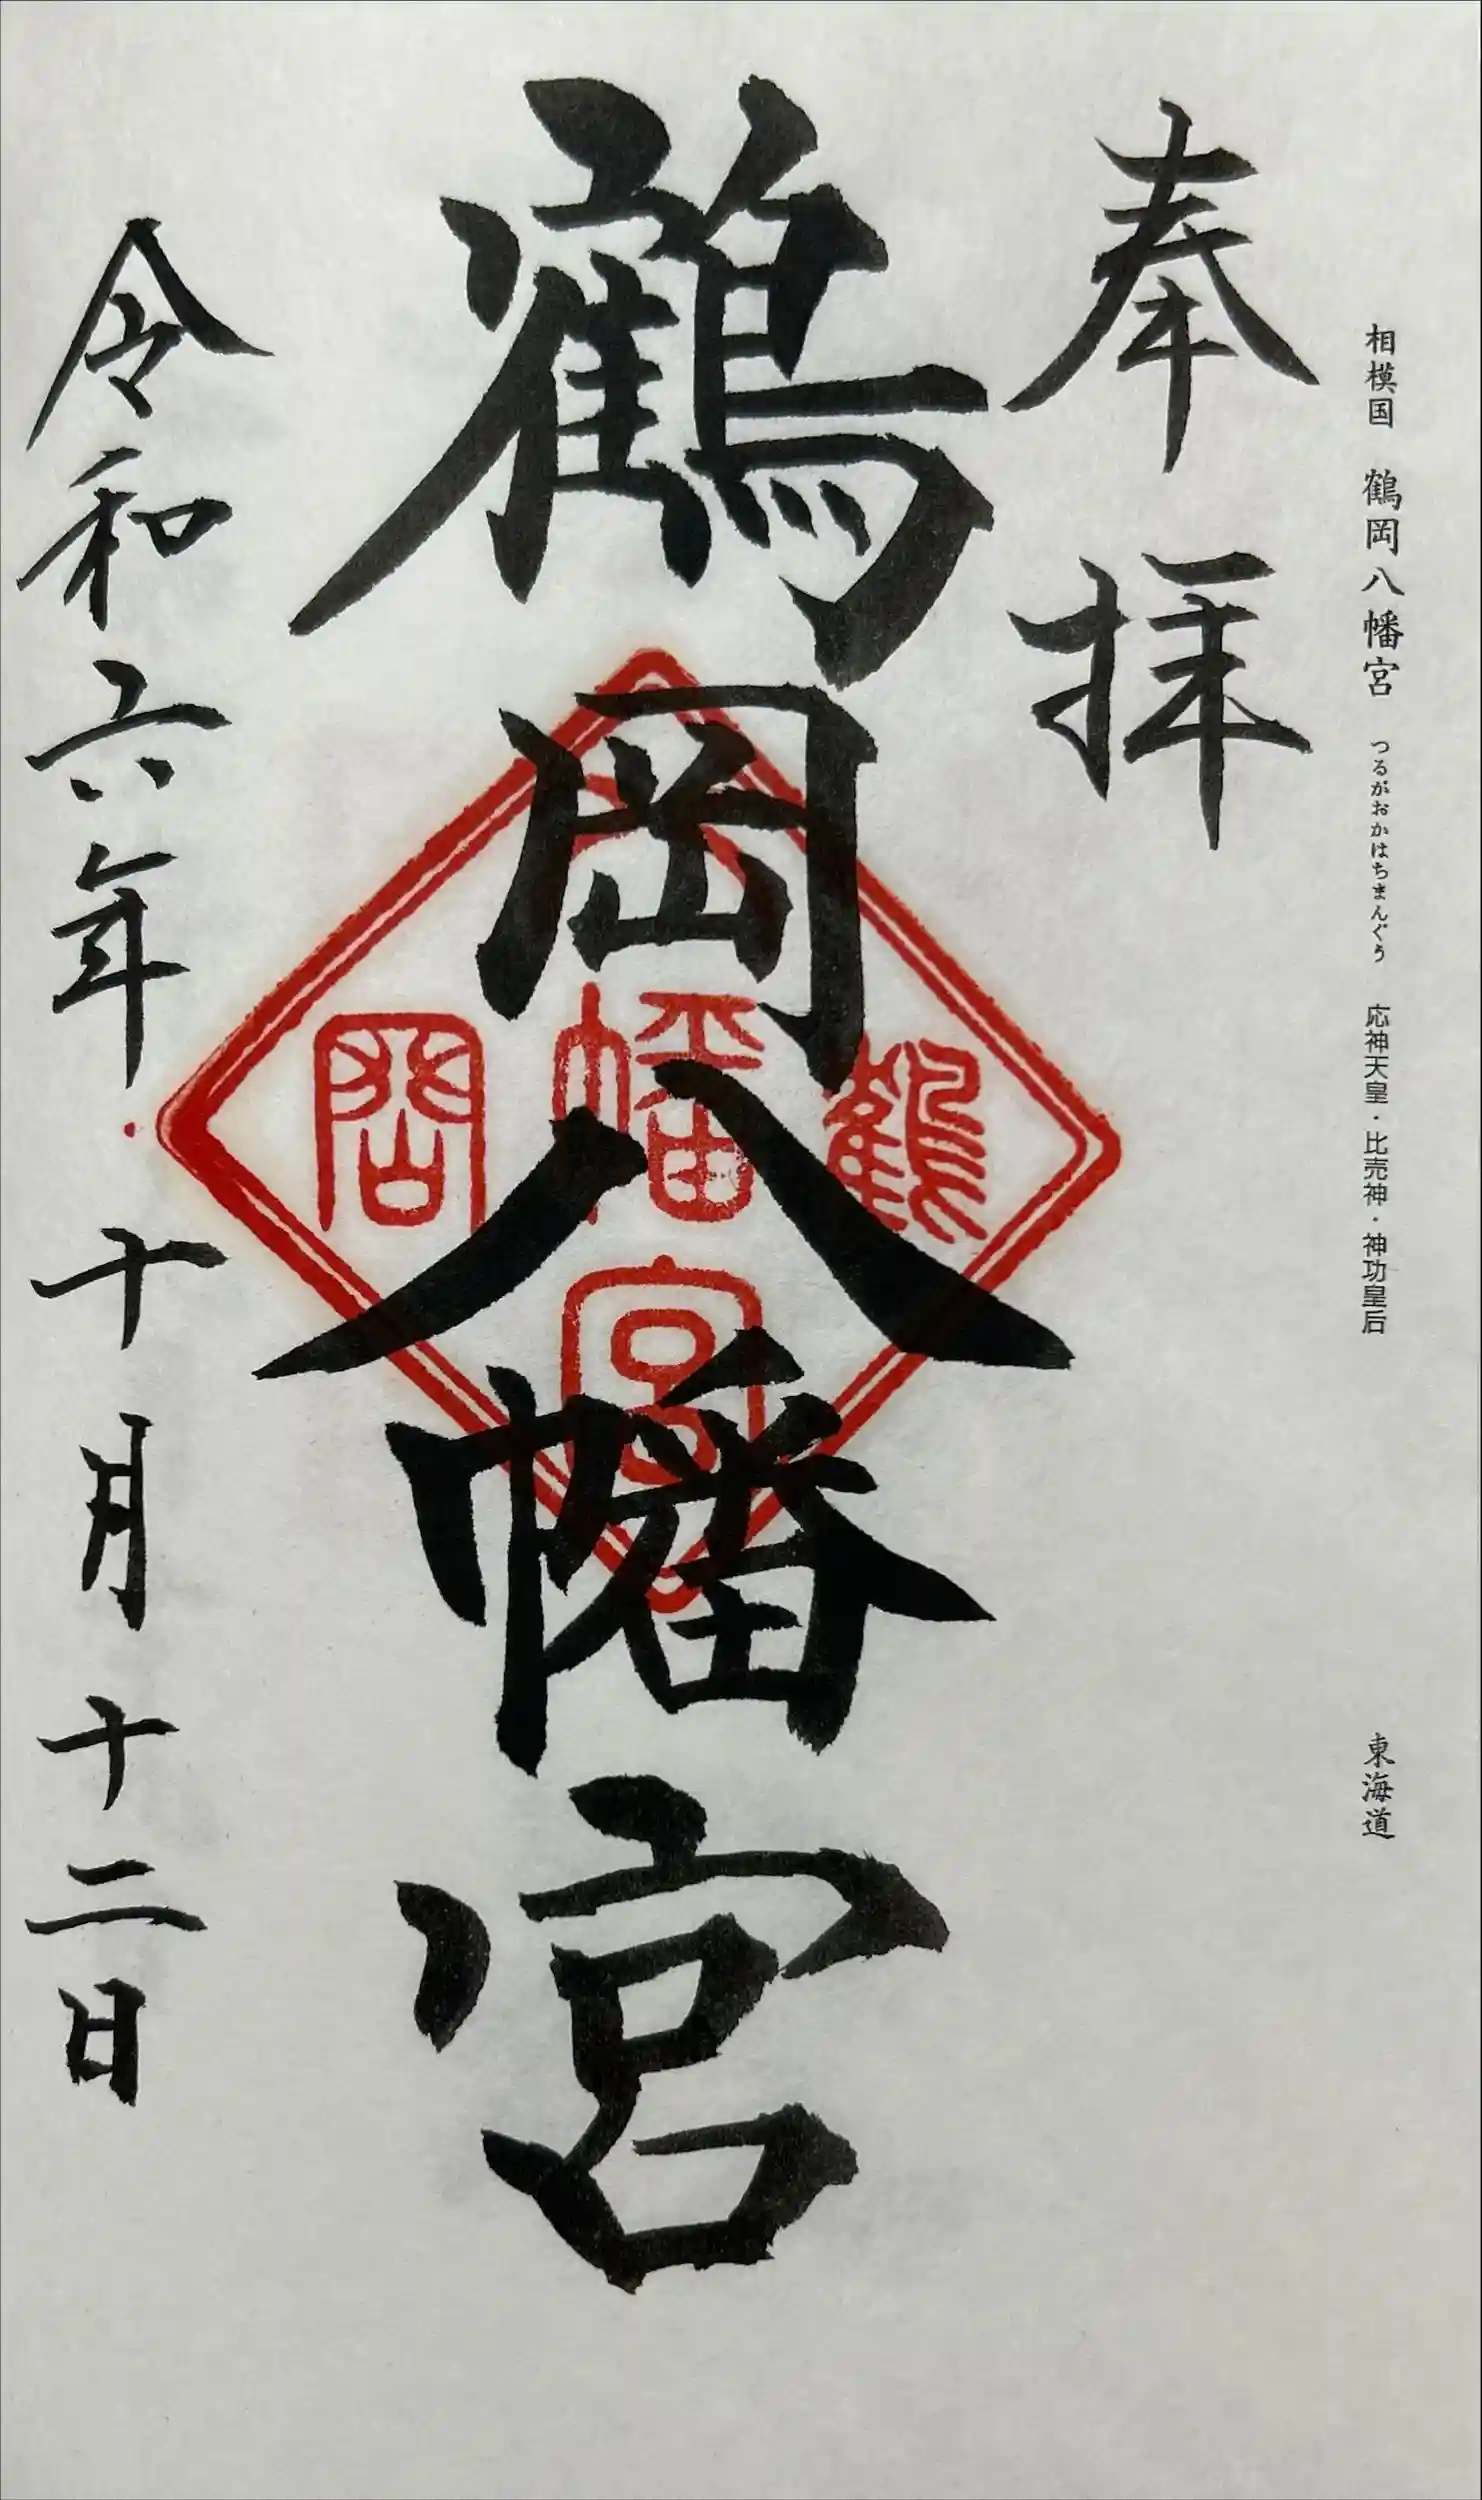 相模国 鶴岡八幡宮 つるがおかはちまんぐう 応神天皇・比売神・神功皇后 東海道
奉拝
鶴岡八幡宮
鶴岡八幡宮
令和六年十月十二日